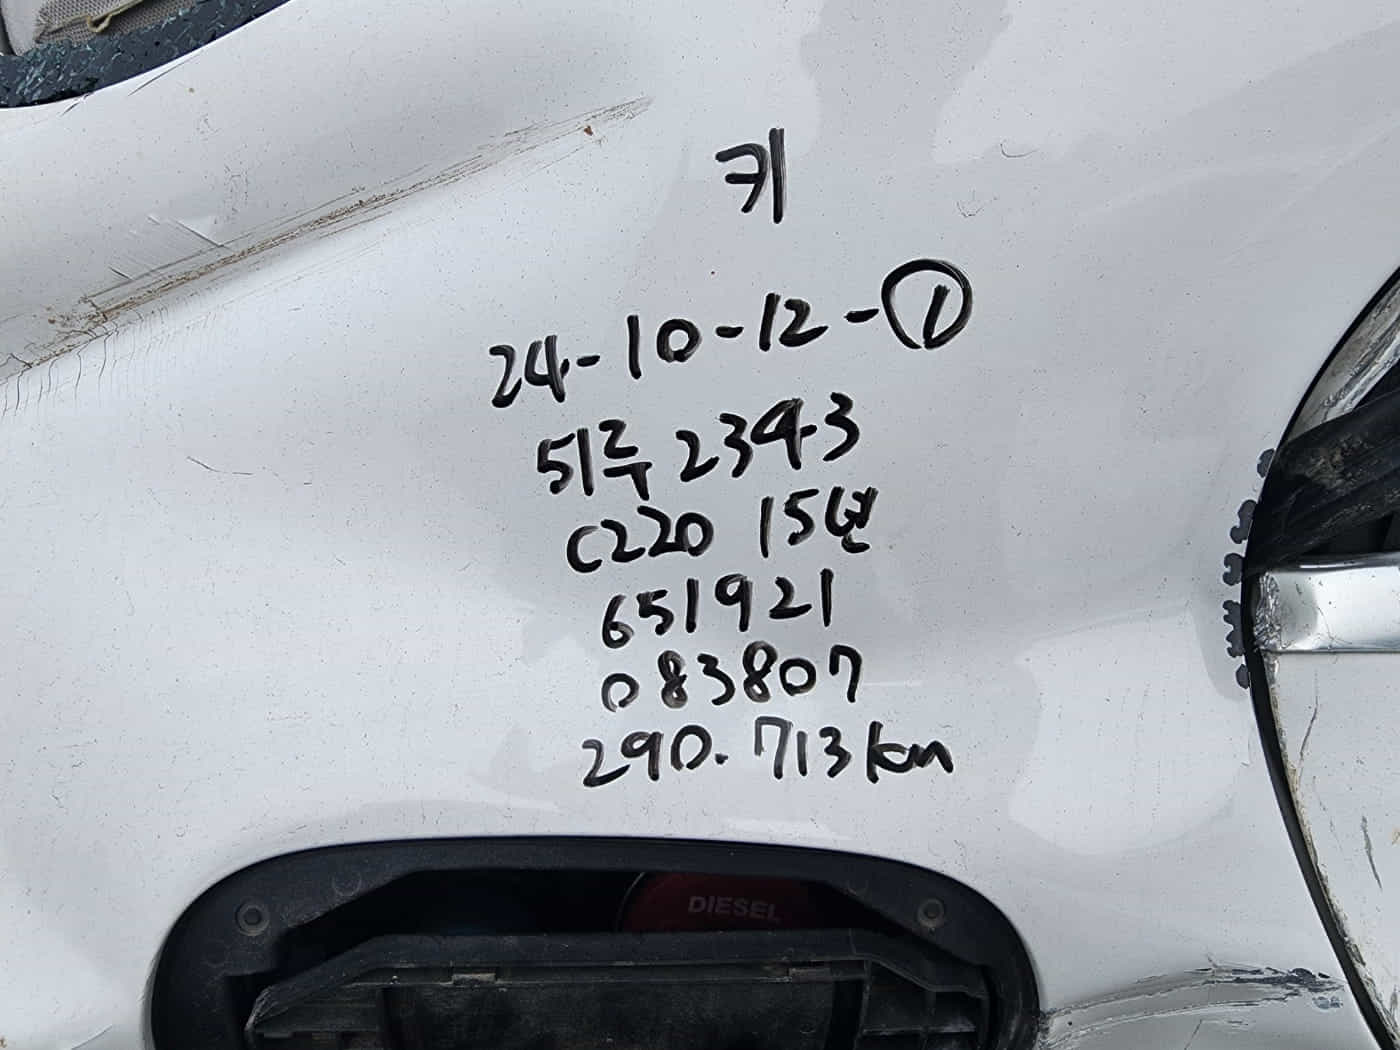 키
24-10-12-①
51루 2343
C220 15년
651921
083807
290.713km
DIESEL